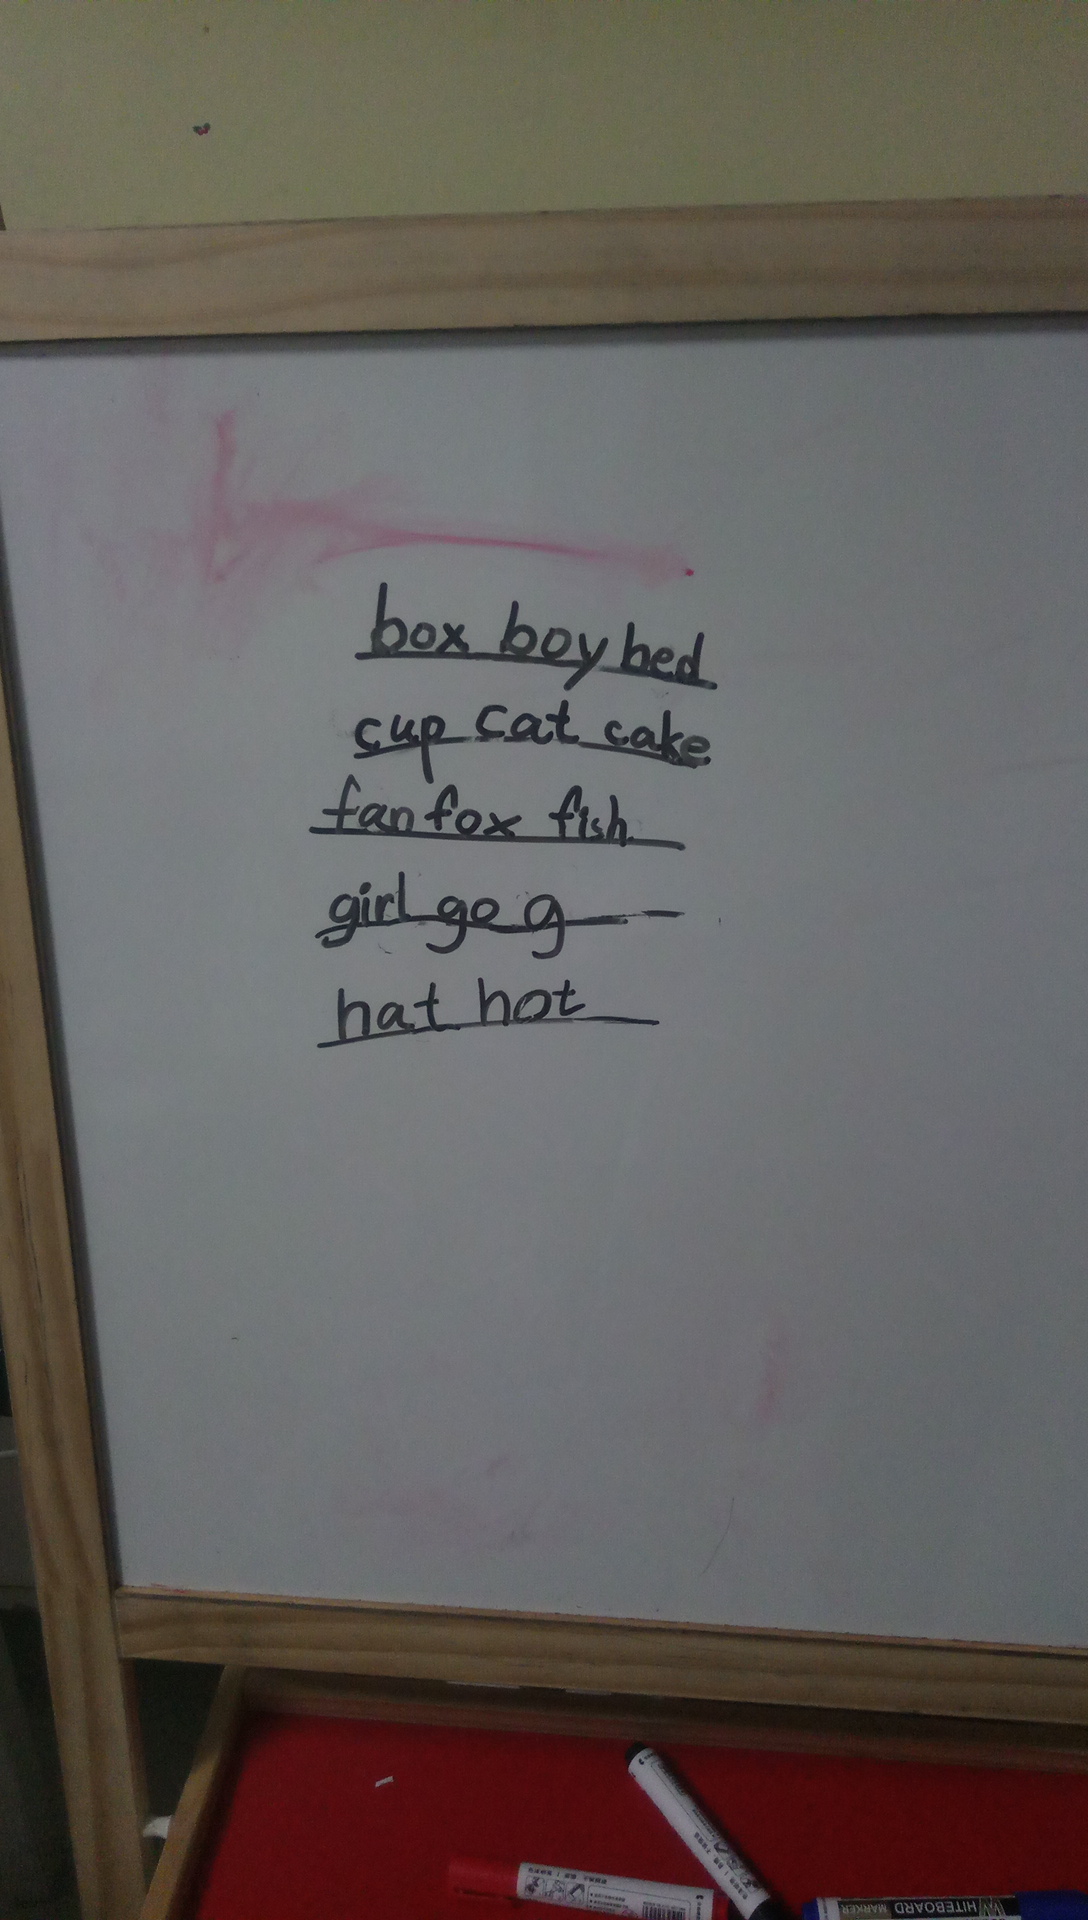 box boy bed
cup cat cake
fan fox fish
girl go g
hat hot
WHITEBOARD
MARKER